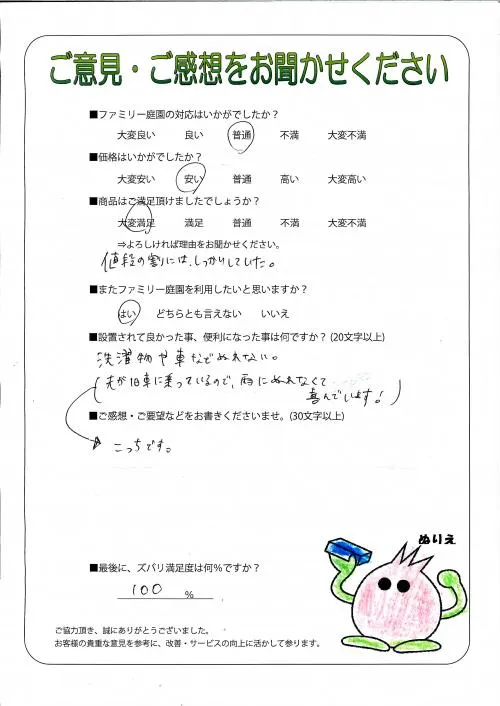 ご意見・ご感想をお聞かせください
■ファミリー庭園の対応はいかがでしたか？
大変良い 良い 普通 不満 大変不満
■価格はいかがでしたか？
大変安い 安い 普通 高い 大変高い
■商品はご満足頂けましたでしょうか？
大変満足 満足 普通 不満 大変不満
⇒よろしければ理由をお聞かせください。
値段の割りには、しっかりしていた。
■またファミリー庭園を利用したいと思いますか？
はい どちらとも言えない いいえ
■設置されて良かった事、便利になった事は何ですか？(20文字以上)
洗濯物や車などぬれない。
(夫が旧車に乗っているので、雨にぬれなくて
喜んでいます！)
■ご感想・ご要望などをお書きくださいませ。(30文字以上)
こっちです。
ぬりえ
■最後に、ズバリ満足度は何％ですか？
100 ％
ご協力頂き、誠にありがとうございました。
お客様の貴重な意見を参考に、改善・サービスの向上に活かして参ります。